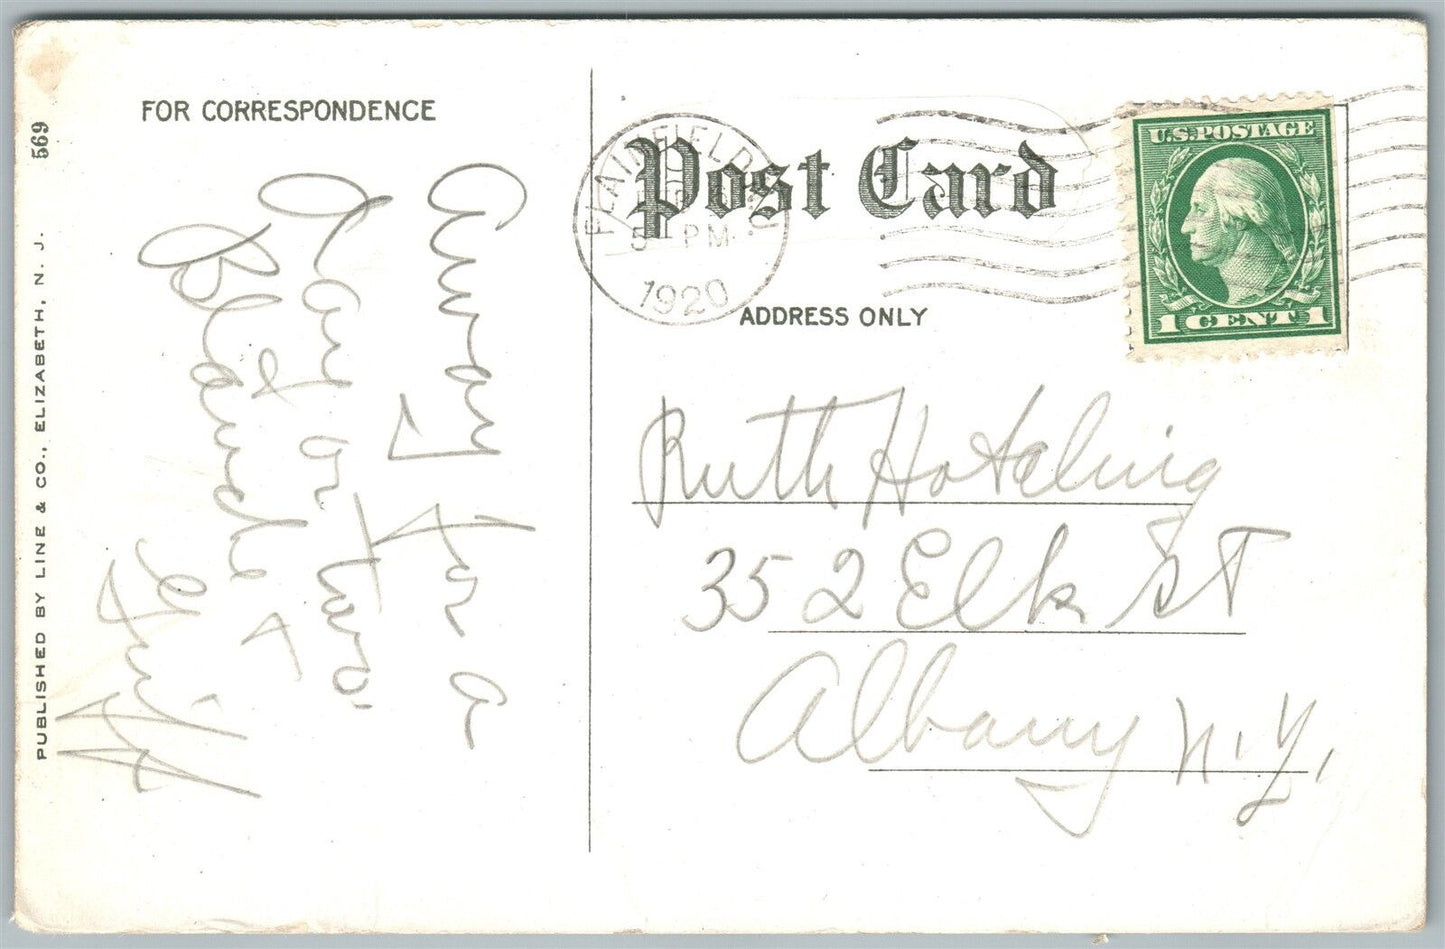 569
PUBLISHED BY LINE & CO., ELIZABETH, N. J.
FOR CORRESPONDENCE
Away for a
day or two.
Blanche &
Post Card
PLAINFIELD
5 PM
1920
ADDRESS ONLY
U.S. POSTAGE
1 CENT 1
Ruth Hotaling
352 Elk St
Albany N.Y.